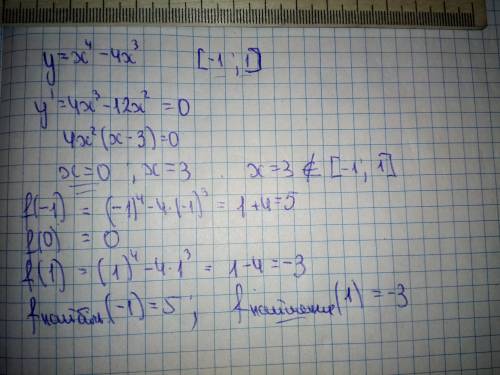 y=x⁴-4x³ [-1;1]
y'=4x³-12x²=0
4x²(x-3)=0
x=0; x=3 x=3∉[-1;1]
f(-1) = (-1)⁴-4·(-1)³ = 1+4=5
f(0) = 0
f(1) = (1)⁴-4·1³ = 1-4=-3
fнаибол(-1)=5; fнаименьшее(1)=-3